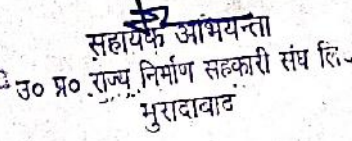 सहायक अभियन्ता
उ० प्र० राज्य निर्माण सहकारी संघ लि.
मुरादाबाद